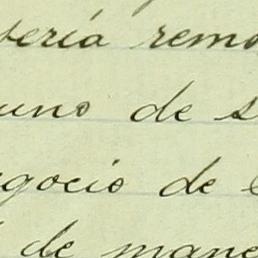 sería remo
uno de s
gocio de
de mane